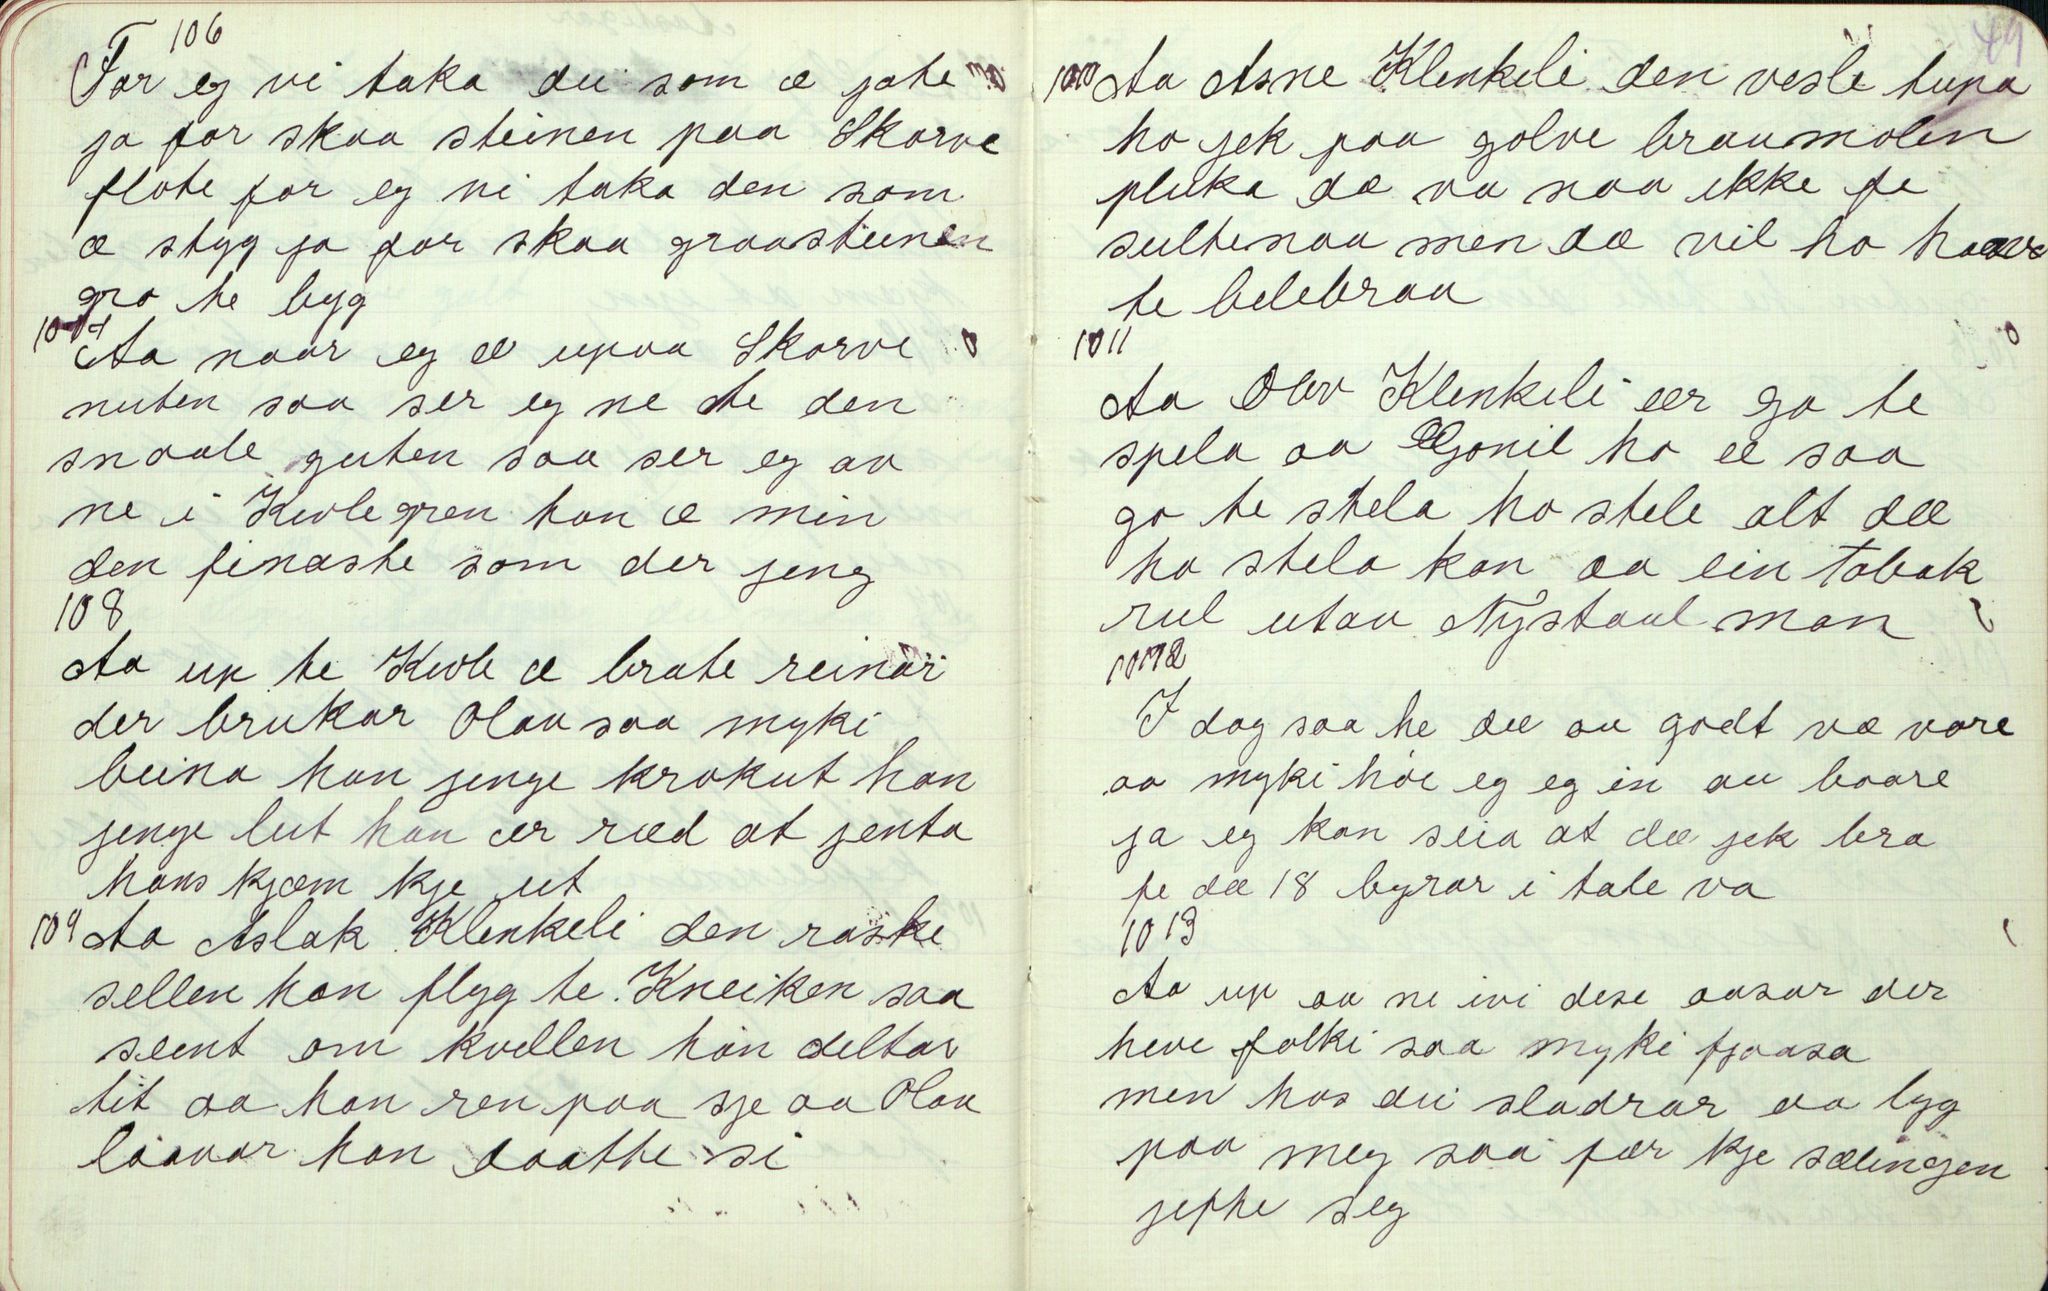 106
For eg vi taka dei som æ jote
ja for skaa steinen paa Skorve
flote for eg vi taka den som
æ styg ja for skaa graasteinen
gro te byg
107
Aa naar eg æ upaa Skorve
nuten saa ser eg ne te den
snaale guten saa ser eg av
ne i Kivle gren han æ min
den finaste som der jeng
108
Aa up te Kivle æ brate reinar
der brukar Olav saa myki
beina han jenge krokut han
jenge lut han ær ræd at jenta
hans kjæm kje ut
109 Aa Aslak Klenkeli den raske
sellen han flyg te Kneiken saa
seent om kvellen han deltar
tit aa han ren paa sje aa Olav
laavar han daatte si
49
1010 Aa Asne Klenkeli den vesle tupa
ho jek paa golve braumolen
pluka dæ va naa ikke fe
sultenaa men dæ vil ho haave
te belebraa
1011
Aa Olav Klenkeli ær go te
spela aa Gonil ho æ saa
go te stela ho stele alt dæ
ho stela kan aa ein tobak
rul utav Nystaul man
1012
I dag saa he dæ au godt væ vore
aa myki höi eg eg in au baare
ja eg kan seia at dæ jek bra
fe dæ 18 byrar i tale va
1013
Aa up aa ne ivi dese aasar der
heve folki saa myki fjaasa
men hos dei sladrar aa lyg
paa meg saa fær kje sælingen
jefte seg